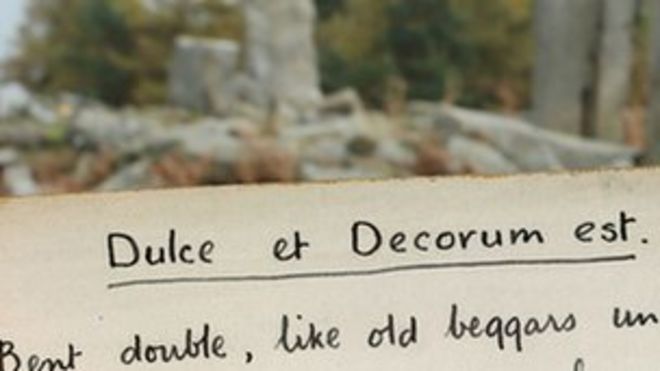 Dulce et Decorum est.
Bent double, like old beggars un